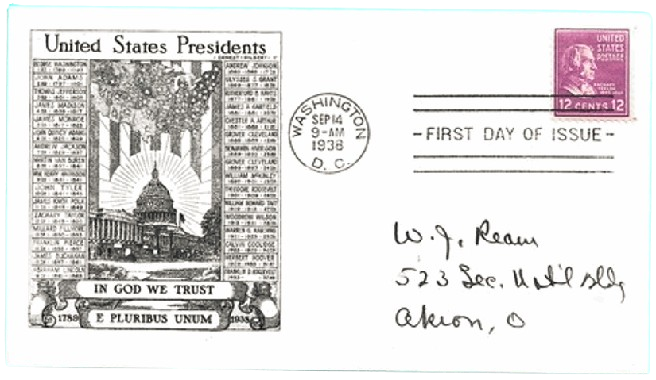 United States Presidents
GEORGE WASHINGTON
JOHN ADAMS
THOMAS JEFFERSON
JAMES MADISON
JAMES MONROE
JOHN QUINCY ADAMS
ANDREW JACKSON
MARTIN VAN BUREN
WM. HENRY HARRISON
JOHN TYLER
JAMES KNOX POLK
ZACHARY TAYLOR
MILLARD FILLMORE
FRANKLIN PIERCE
JAMES BUCHANAN
ABRAHAM LINCOLN
ANDREW JOHNSON
ULYSSES S. GRANT
RUTHERFORD B. HAYES
JAMES A. GARFIELD
CHESTER A. ARTHUR
GROVER CLEVELAND
BENJAMIN HARRISON
GROVER CLEVELAND
WILLIAM McKINLEY
THEODORE ROOSEVELT
WILLIAM HOWARD TAFT
WOODROW WILSON
WARREN G. HARDING
CALVIN COOLIDGE
HERBERT HOOVER
FRANKLIN D. ROOSEVELT
IN GOD WE TRUST
1789 E PLURIBUS UNUM 1938
WASHINGTON
SEP 14
9-AM
1938
D. C.
UNITED
STATES
POSTAGE
ZACHARY
TAYLOR
12 CENTS 12
-FIRST DAY OF ISSUE-
W. J. Ream
523 Sec. Nat'l Bldg
Akron, O